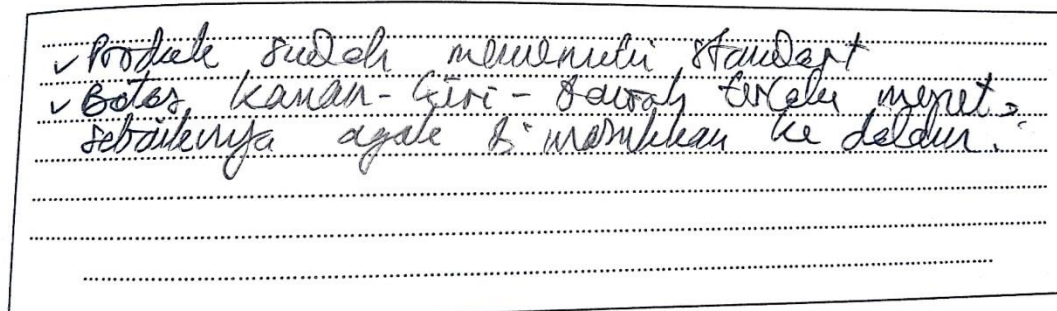 ✓ Produk sudah memenuhi standart
✓ Batas kanan-kiri-bawah terlalu mepet,
sebaiknya agak dimasukkan ke dalam.